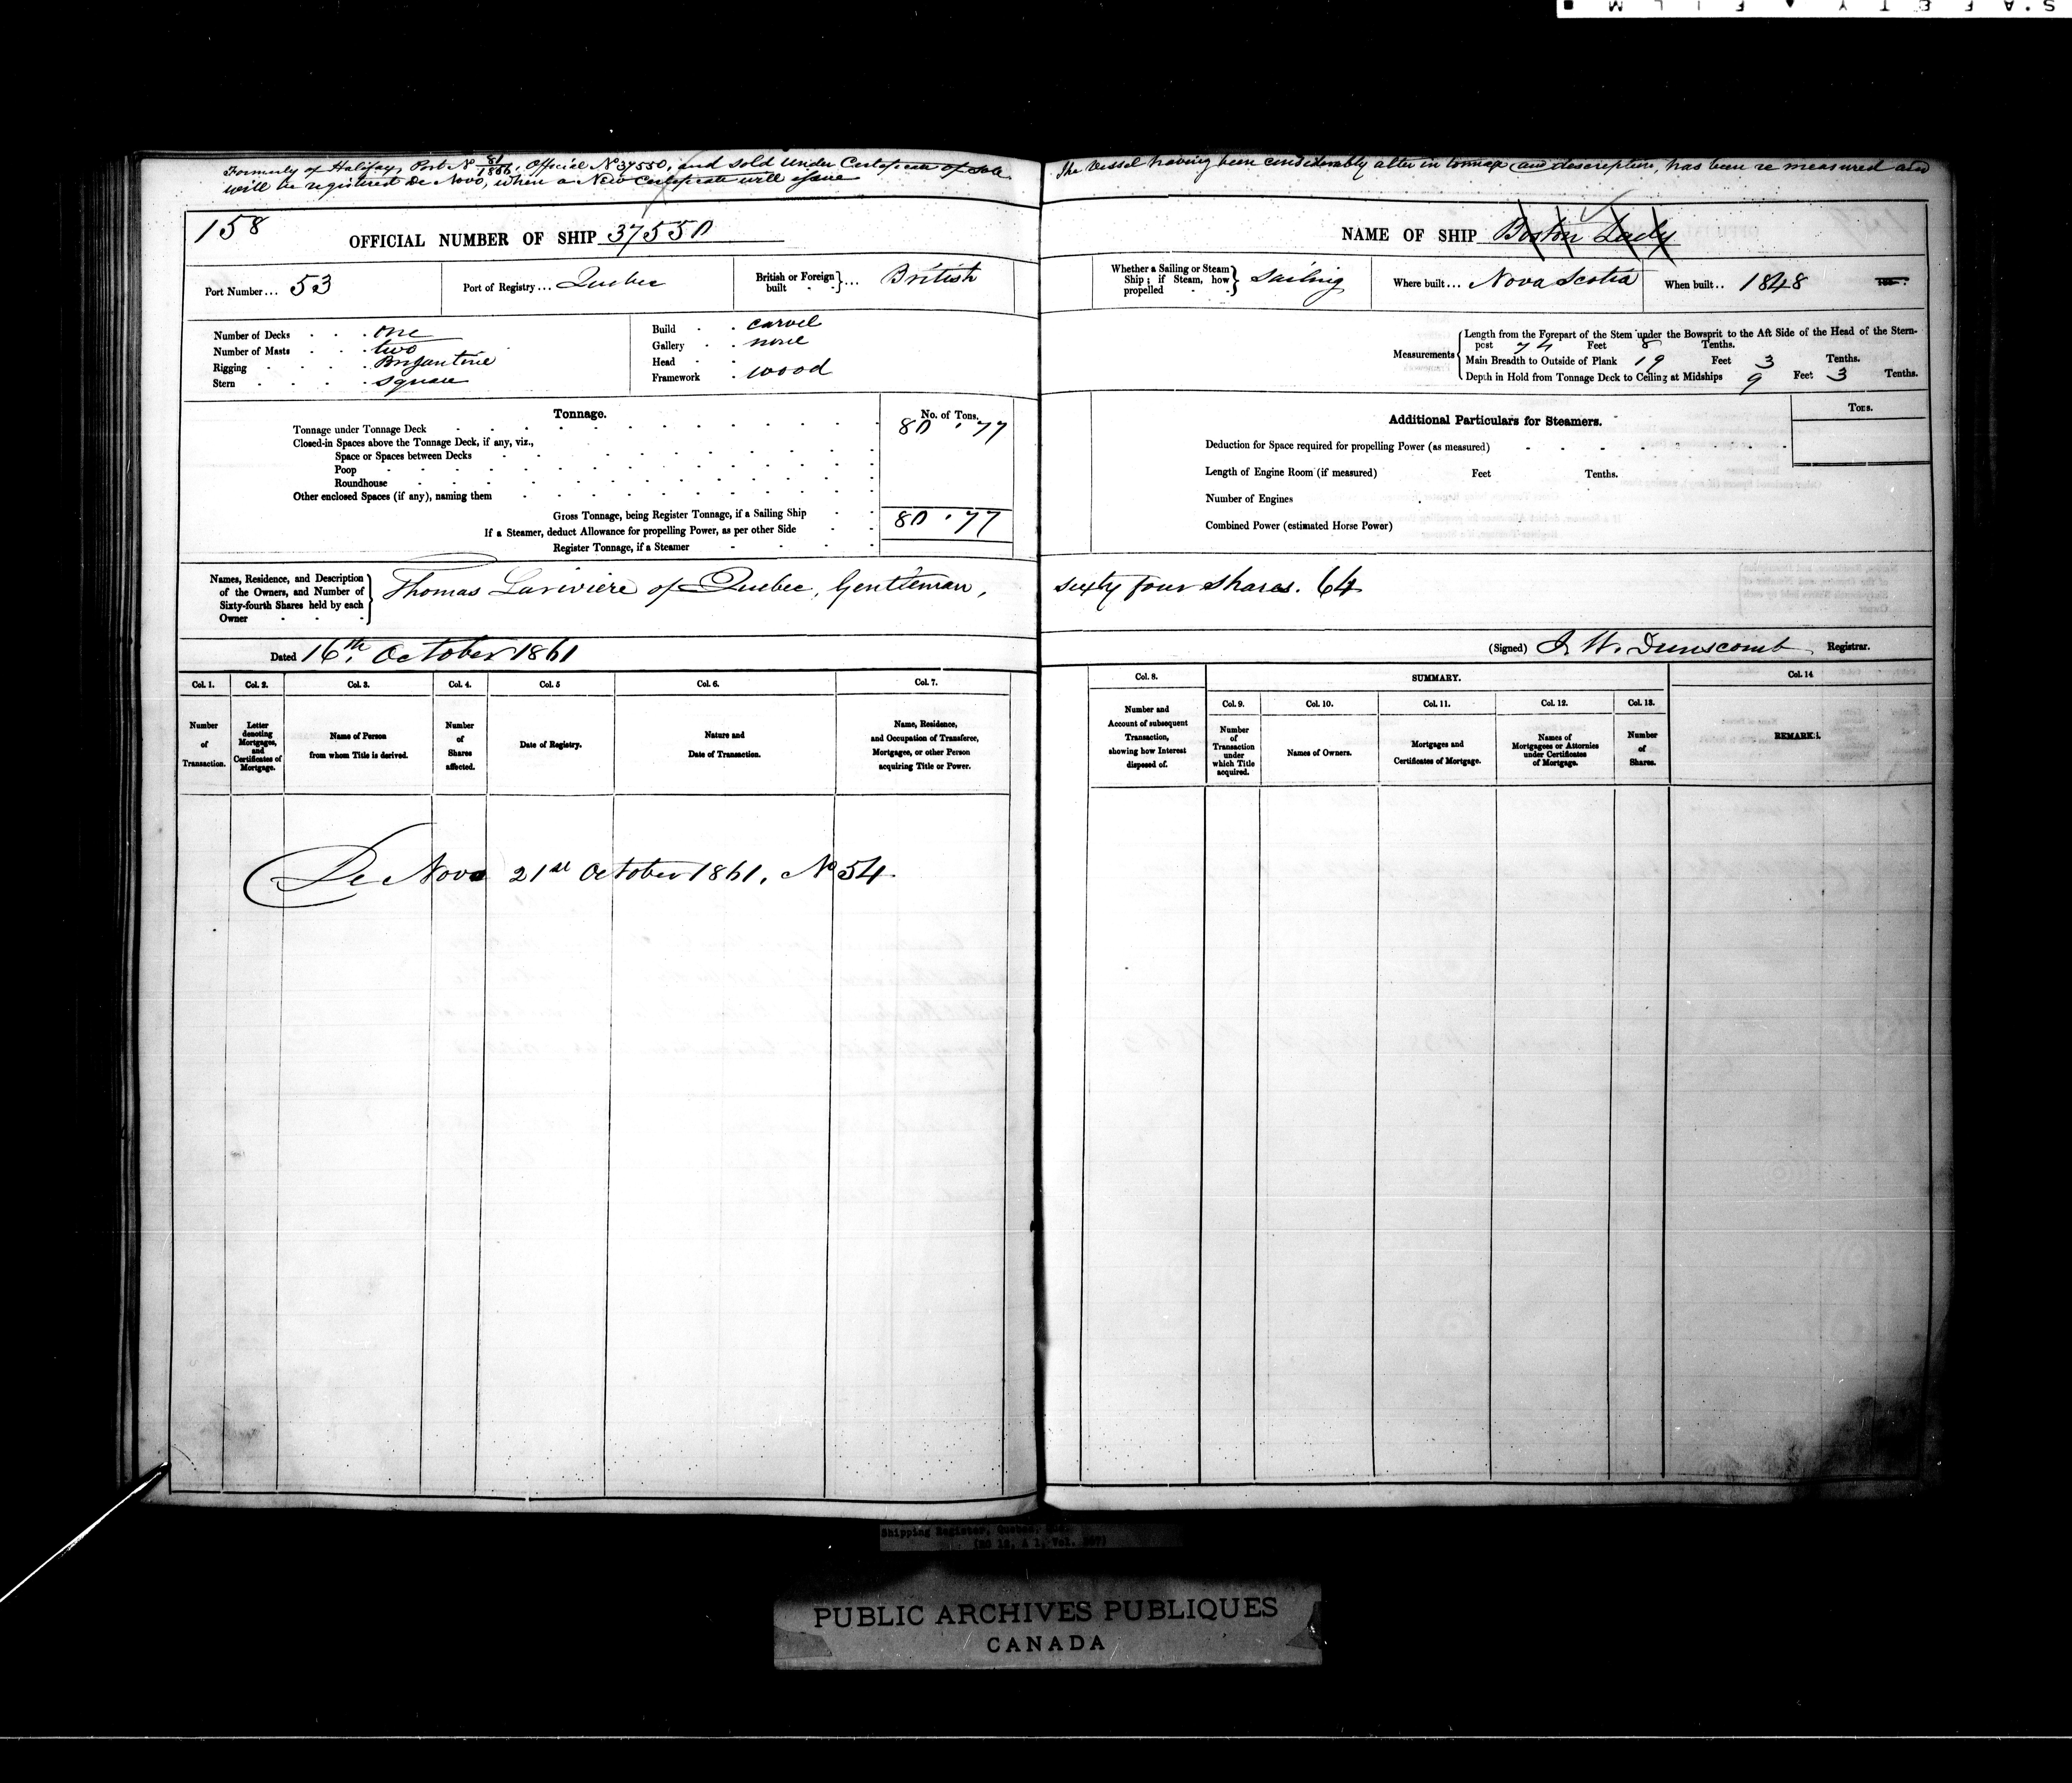 SAFETY FILM
Formerly of Halifax, Port No 81/1856, Official No 37550, and sold under Certificate of Sale. The Vessel having been considerably alter in tonnage and description, has been re measured and
will be registered de Novo, when a New Certificate will issue
158
OFFICIAL NUMBER OF SHIP 37550
NAME OF SHIP Boston Lady
Port Number... 53 Port of Registry... Quebec British or Foreign built ... British
Whether a Sailing or Steam Ship; if Steam, how propelled Sailing Where built... Nova Scotia When built.. 1848
Number of Decks one
Number of Masts two
Rigging Brigantine
Stern square
Build carvel
Gallery none
Head
Framework wood
Measurements
Length from the Forepart of the Stem under the Bowsprit to the Aft Side of the Head of the Stern-
post 74 Feet 8 Tenths.
Main Breadth to Outside of Plank 19 Feet 3 Tenths.
Depth in Hold from Tonnage Deck to Ceiling at Midships 9 Feet 3 Tenths.
Tonnage. No. of Tons.
Tonnage under Tonnage Deck 80 . 77
Closed-in Spaces above the Tonnage Deck, if any, viz.,
Space or Spaces between Decks
Poop
Roundhouse
Other enclosed Spaces (if any), naming them
Gross Tonnage, being Register Tonnage, if a Sailing Ship 80 . 77
If a Steamer, deduct Allowance for propelling Power, as per other Side
Register Tonnage, if a Steamer
Additional Particulars for Steamers. Tons.
Deduction for Space required for propelling Power (as measured)
Length of Engine Room (if measured) Feet Tenths.
Number of Engines
Combined Power (estimated Horse Power)
Names, Residence, and Description
of the Owners, and Number of
Sixty-fourth Shares held by each
Owner
Thomas Lariviere of Quebec, Gentleman, sixty four shares. 64
Dated 16th October 1861
(Signed) J W. Dunscomb Registrar.
Col. 1. Col. 2. Col. 3. Col. 4. Col. 5 Col. 6. Col. 7.
Number of Transaction.
Letter denoting Mortgages, and Certificates of Mortgage.
Name of Person from whom Title is derived.
Number of Shares affected.
Date of Registry.
Nature and Date of Transaction.
Name, Residence, and Occupation of Transferee, Mortgagee, or other Person acquiring Title or Power.
Col. 8. SUMMARY. Col. 14
Col. 9. Col. 10. Col. 11. Col. 12. Col. 13.
Number and Account of subsequent Transaction, showing how Interest disposed of.
Number of Transaction under which Title acquired.
Names of Owners.
Mortgages and Certificates of Mortgage.
Names of Mortgagees or Attornies under Certificates of Mortgage.
Number of Shares.
REMARKS.
De Novo 21st October 1861, No 54
Shipping Register, Quebec,
PUBLIC ARCHIVES PUBLIQUES
CANADA